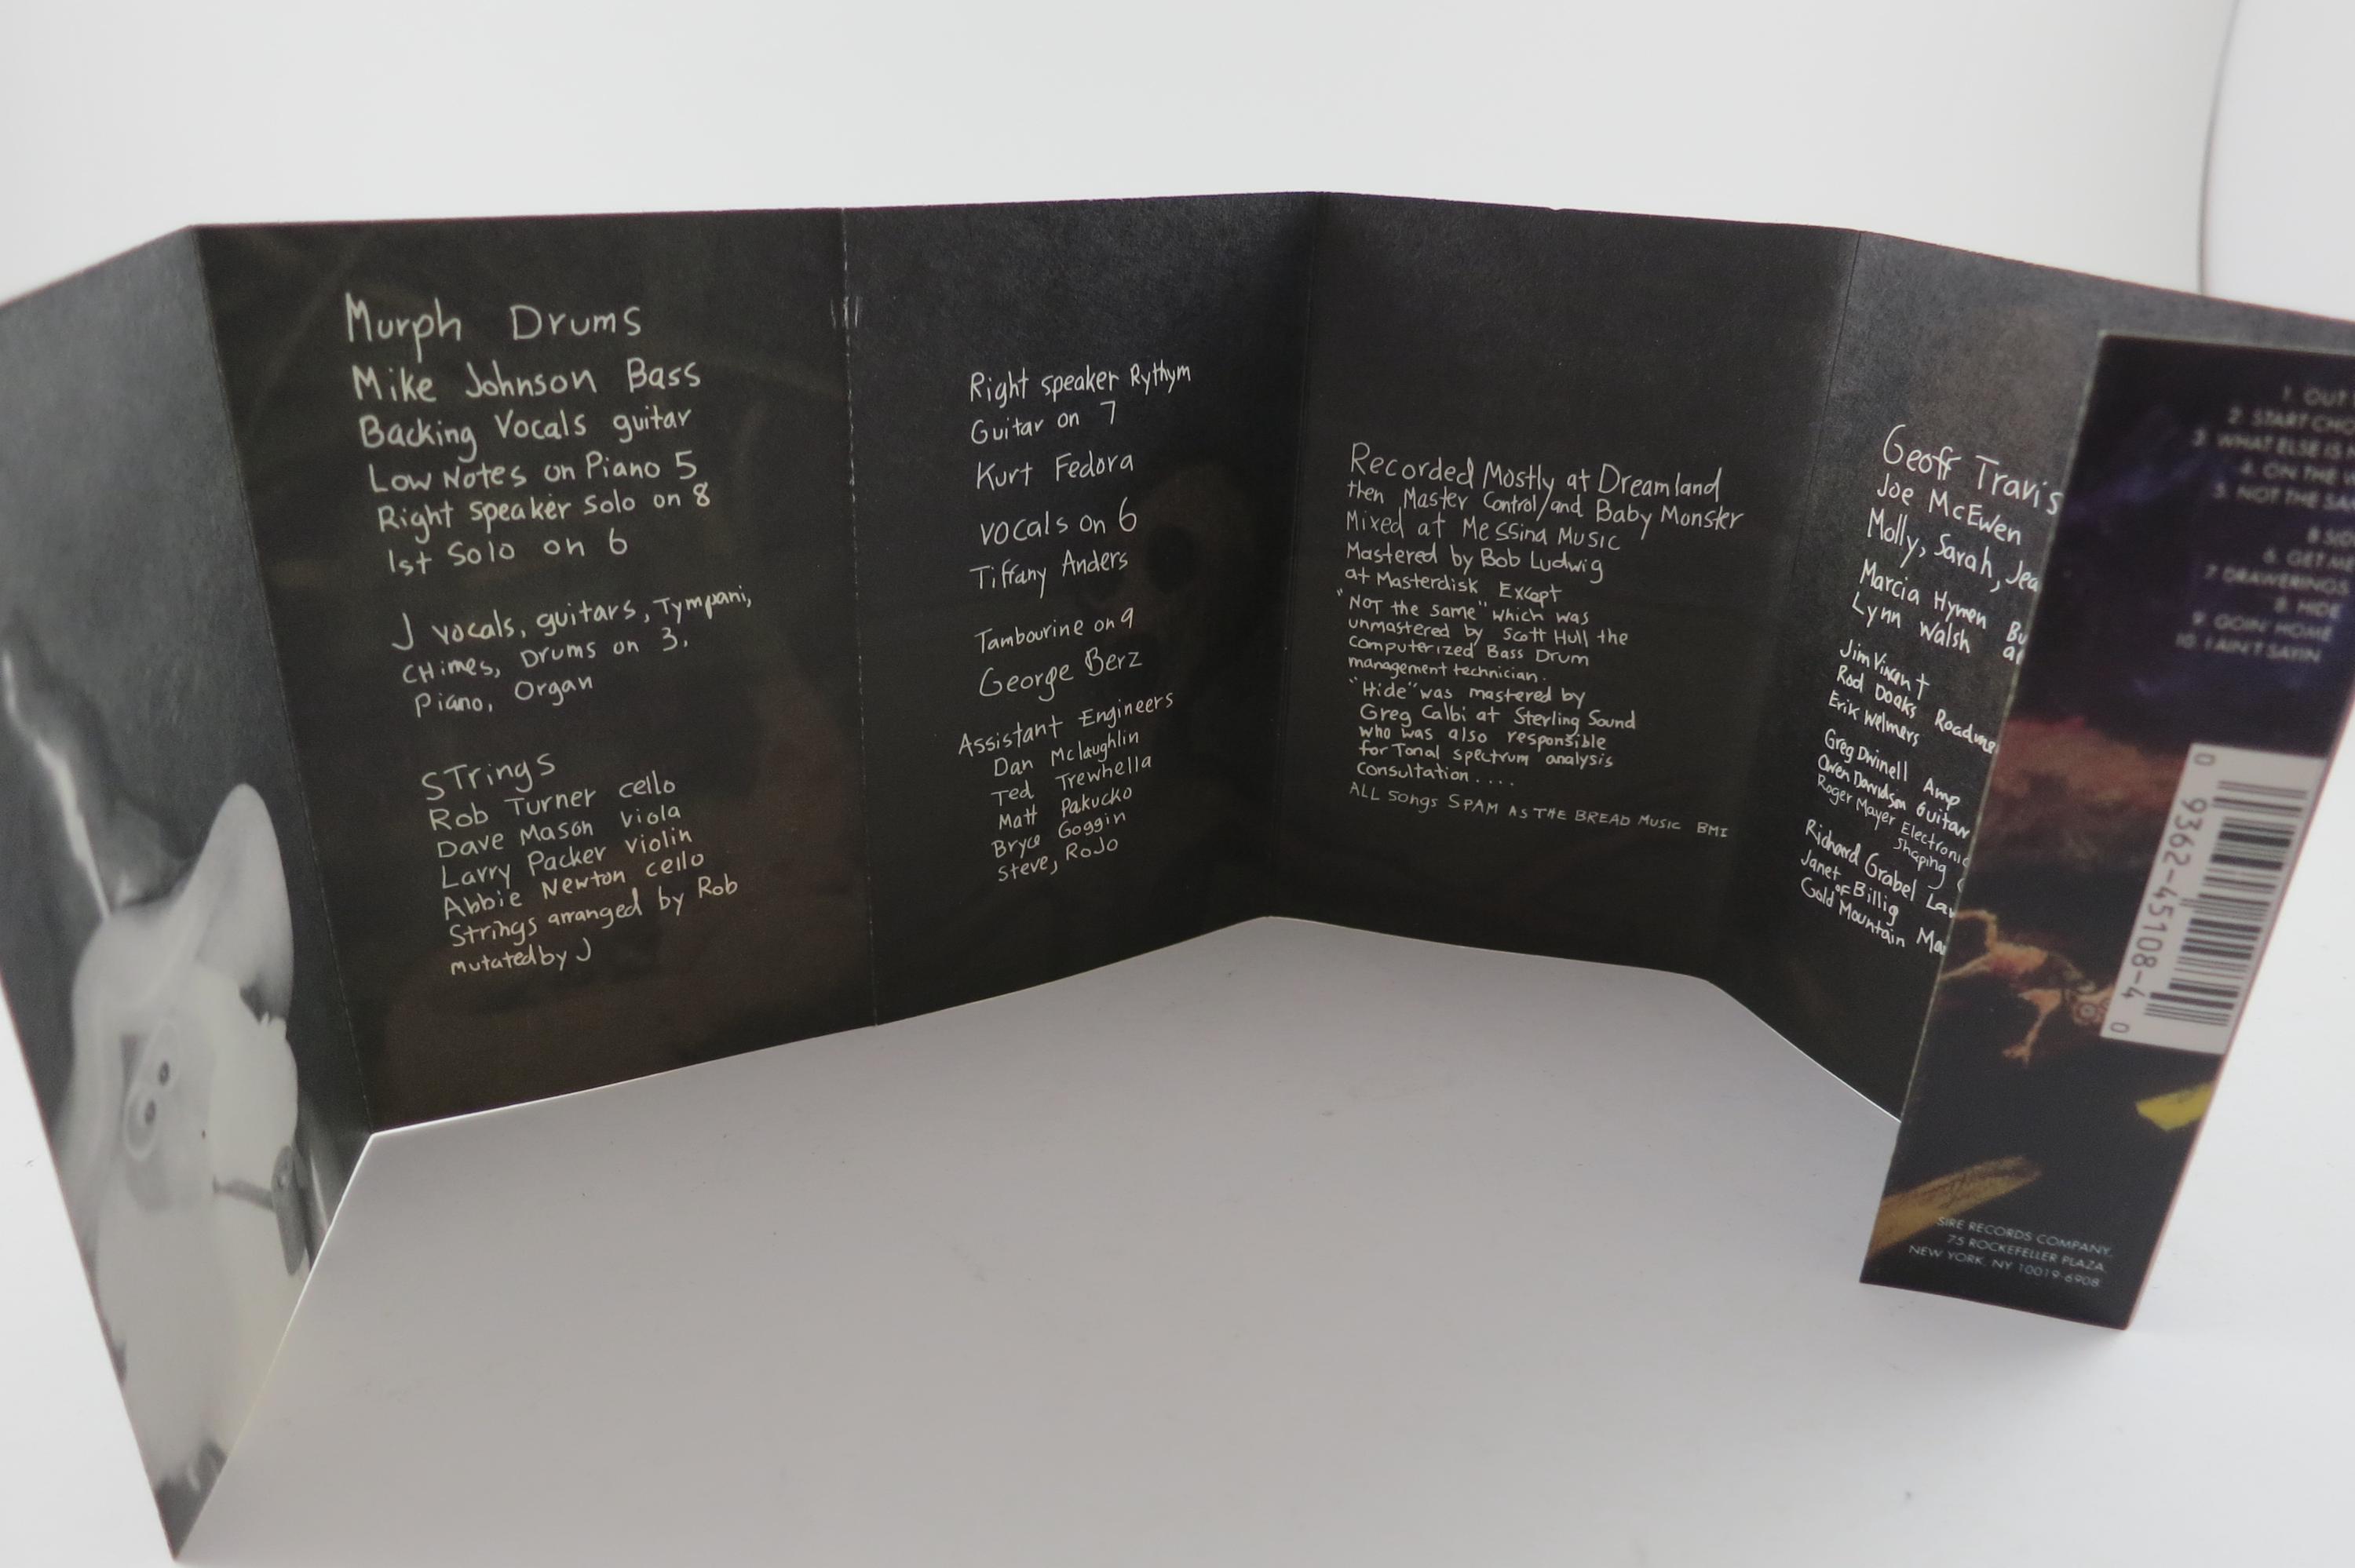 Murph Drums
Mike Johnson Bass
Backing Vocals guitar
Low Notes on Piano 5
Right speaker Solo on 8
1st Solo on 6
J vocals, guitars, Tympani,
CHimes, Drums on 3,
Piano, Organ
STrings
Rob Turner cello
Dave Mason Viola
Larry Packer violin
Abbie Newton cello
Strings arranged by Rob
mutated by J
Right speaker Rythym
Guitar on 7
Kurt Fedora
vocals on 6
Tiffany Anders
Tambourine on 9
George Berz
Assistant Engineers
Dan Mclaughlin
Ted Trewhella
Matt Pakucko
Bryce Goggin
Steve, RoJo
Recorded Mostly at Dreamland
then Master Control/and Baby Monster
Mixed at Messina Music
Mastered by Bob Ludwig
at Masterdisk Except
"NOT the same" which was
unmastered by Scott Hull the
computerized Bass Drum
management technician.
"Hide" was mastered by
Greg Calbi at Sterling Sound
who was also responsible
for Tonal spectrum analysis
consultation....
ALL Songs SPAM AS THE BREAD MUSIC BMI
Geoff Travis
Joe McEwen
Molly, Sarah, Jea
Marcia Hymen Bu
Lynn Walsh
Jim Vincent
Rod Doaks Roadme
Erik Welmers
Greg Dwinell Amp
Owen Davidson Guitar
Roger Mayer Electronic
shaping
Richard Grabel Law
Janet Billig
of
Gold Mountain Ma
1. OUT
2. START CHO
3. WHAT ELSE IS N
4. ON THE W
5. NOT THE SA
6. GET ME
7. DRAWERINGS
8. HIDE
9. GOIN' HOME
10. I AIN'T SAYIN
0 9362-45108-4 0
SIRE RECORDS COMPANY,
75 ROCKEFELLER PLAZA,
NEW YORK, NY 10019-6908